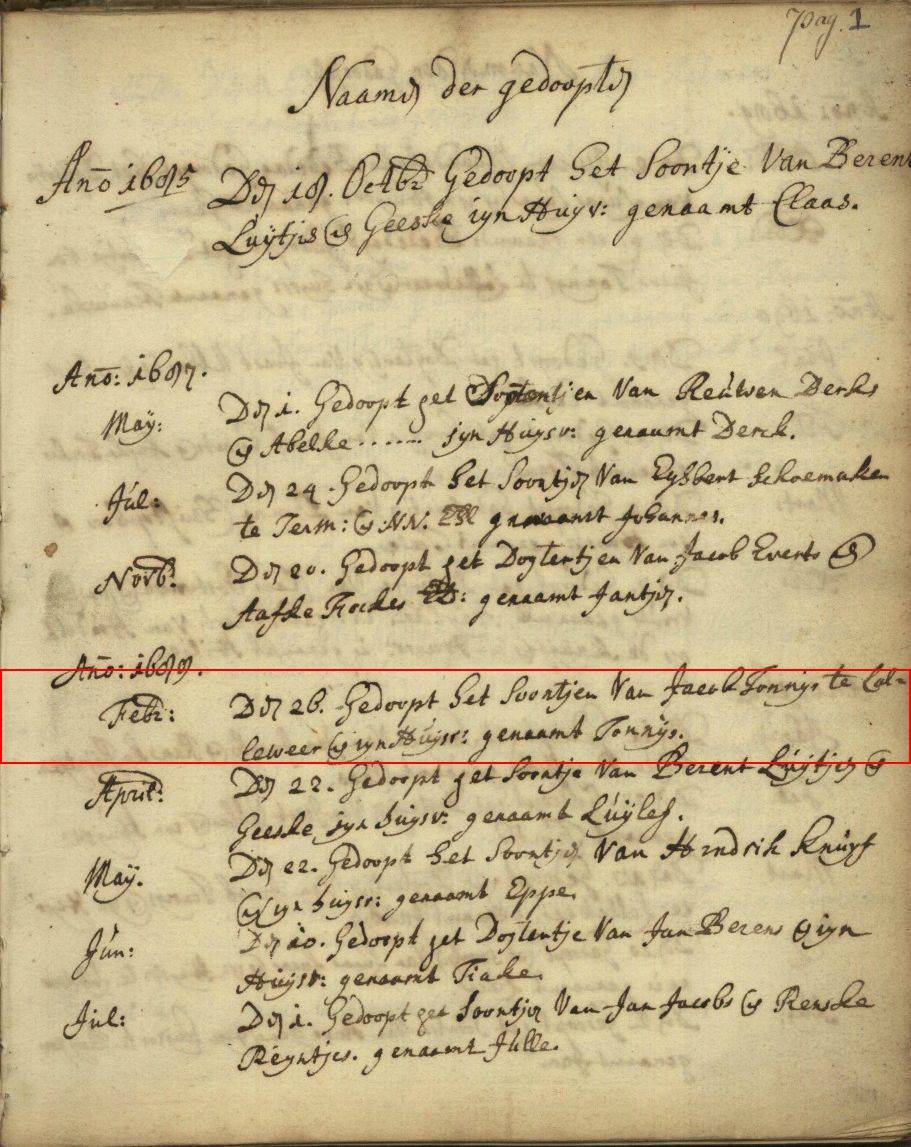 Pag. 1
Naamen der gedoopten
Año 1685 Den 18. Octbr Gedoopt het Soontje Van Berent
Luÿtjes & Geeske syn Huysv: genaamt Claas.
Año: 1687.
May: Den 1. Gedoopt het Dogtertjen Van Reüwen Derks
& Abelke ...... syn Huysv: genaamt Derck.
Jül: Den 24. Gedoopt het Soontjen Van Eysbert Schoemaker
te Term: & NN. genaamt Johannes.
Novb: Den 20. Gedoopt het Dogtertjen Van Jacob Everts &
Aafke Fockes genaamt Jantjen.
Año: 1688.
Febr: Den 26. Gedoopt het Soontjen Van Jacob Tonnys te Col-
leweer & syn Huysv: genaamt Tonnÿs.
April: Den 22. Gedoopt het Soontje Van Berent Lüytjes &
Geeske syn huysv: genaamt Lüyles.
Maÿ. Den 22. Gedoopt het Soontjen Van Hindrik Knüyf
& syn huysv: genaamt Eppe.
Jün: Den 10. Gedoopt het Dogtertje Van Jan Berens & syn
Huysv: genaamt Fiake.
Jül: Den 1. Gedoopt het Soontjen Van Jan Jacobs & Renske
Reyntjes. genaamt Jülle.